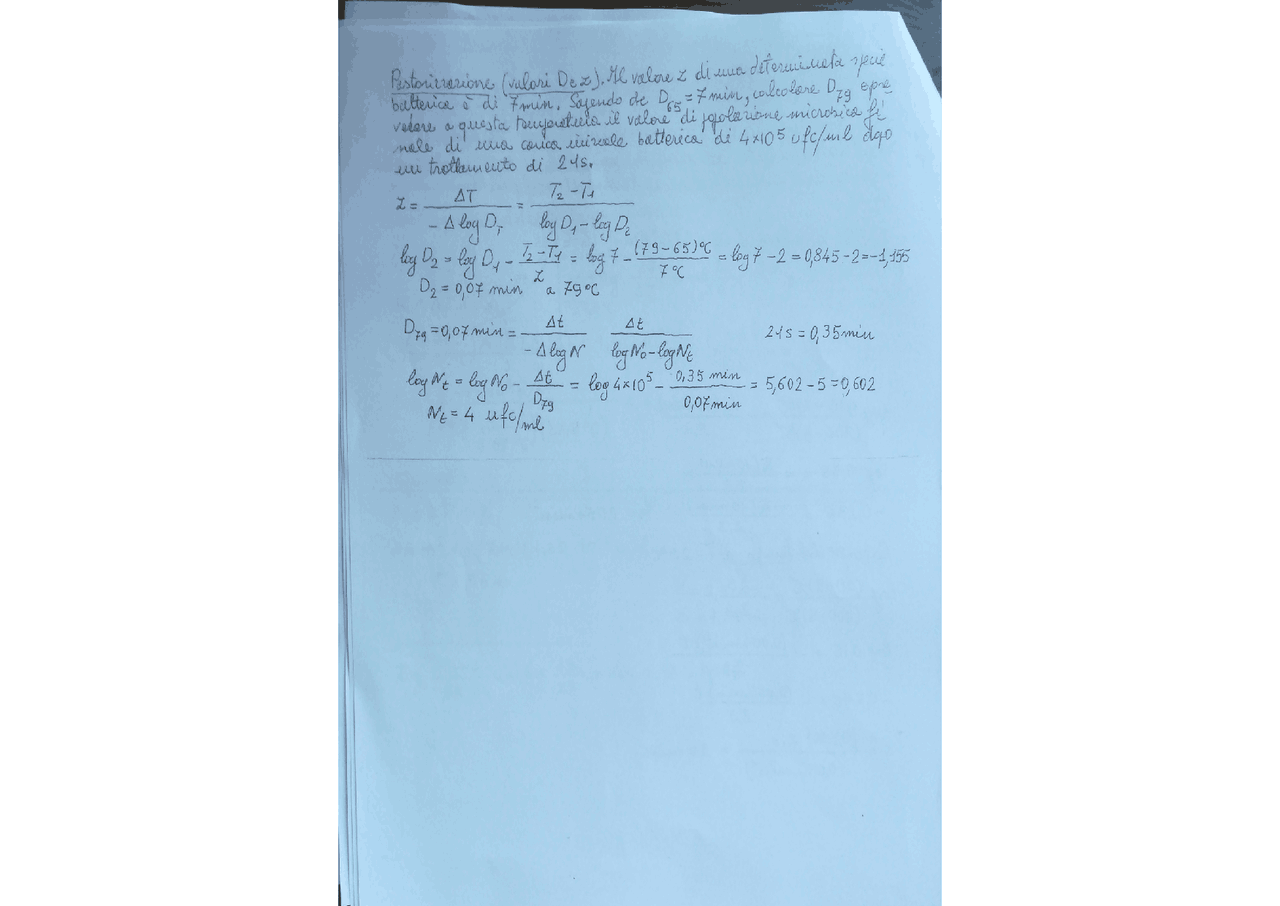 Pastorizzazione (valori D e z). Il valore z di una determinata specie
batterica è di 7min. Sapendo che D65 = 7min, calcolare D79 e pre
vedere a questa temperatura il valore di popolazione microbica fi
nale di una carica iniziale batterica di 4×10⁵ ufc/ml dopo
un trattamento di 21s.
z = ΔT / -Δ log D_T = T₂-T₁ / log D₁ - log D₂
log D₂ = log D₁ - T₂-T₁ / z = log 7 - (79-65)°C / 7°C = log 7 - 2 = 0,845 - 2 = -1,155
D₂ = 0,07 min a 79°C
D79 = 0,07 min = Δt / -Δ log N Δt / log N₀ - log Nt 21s = 0,35 min
log Nt = log N₀ - Δt / D79 = log 4×10⁵ - 0,35 min / 0,07 min = 5,602 - 5 = 0,602
Nt = 4 ufc/ml